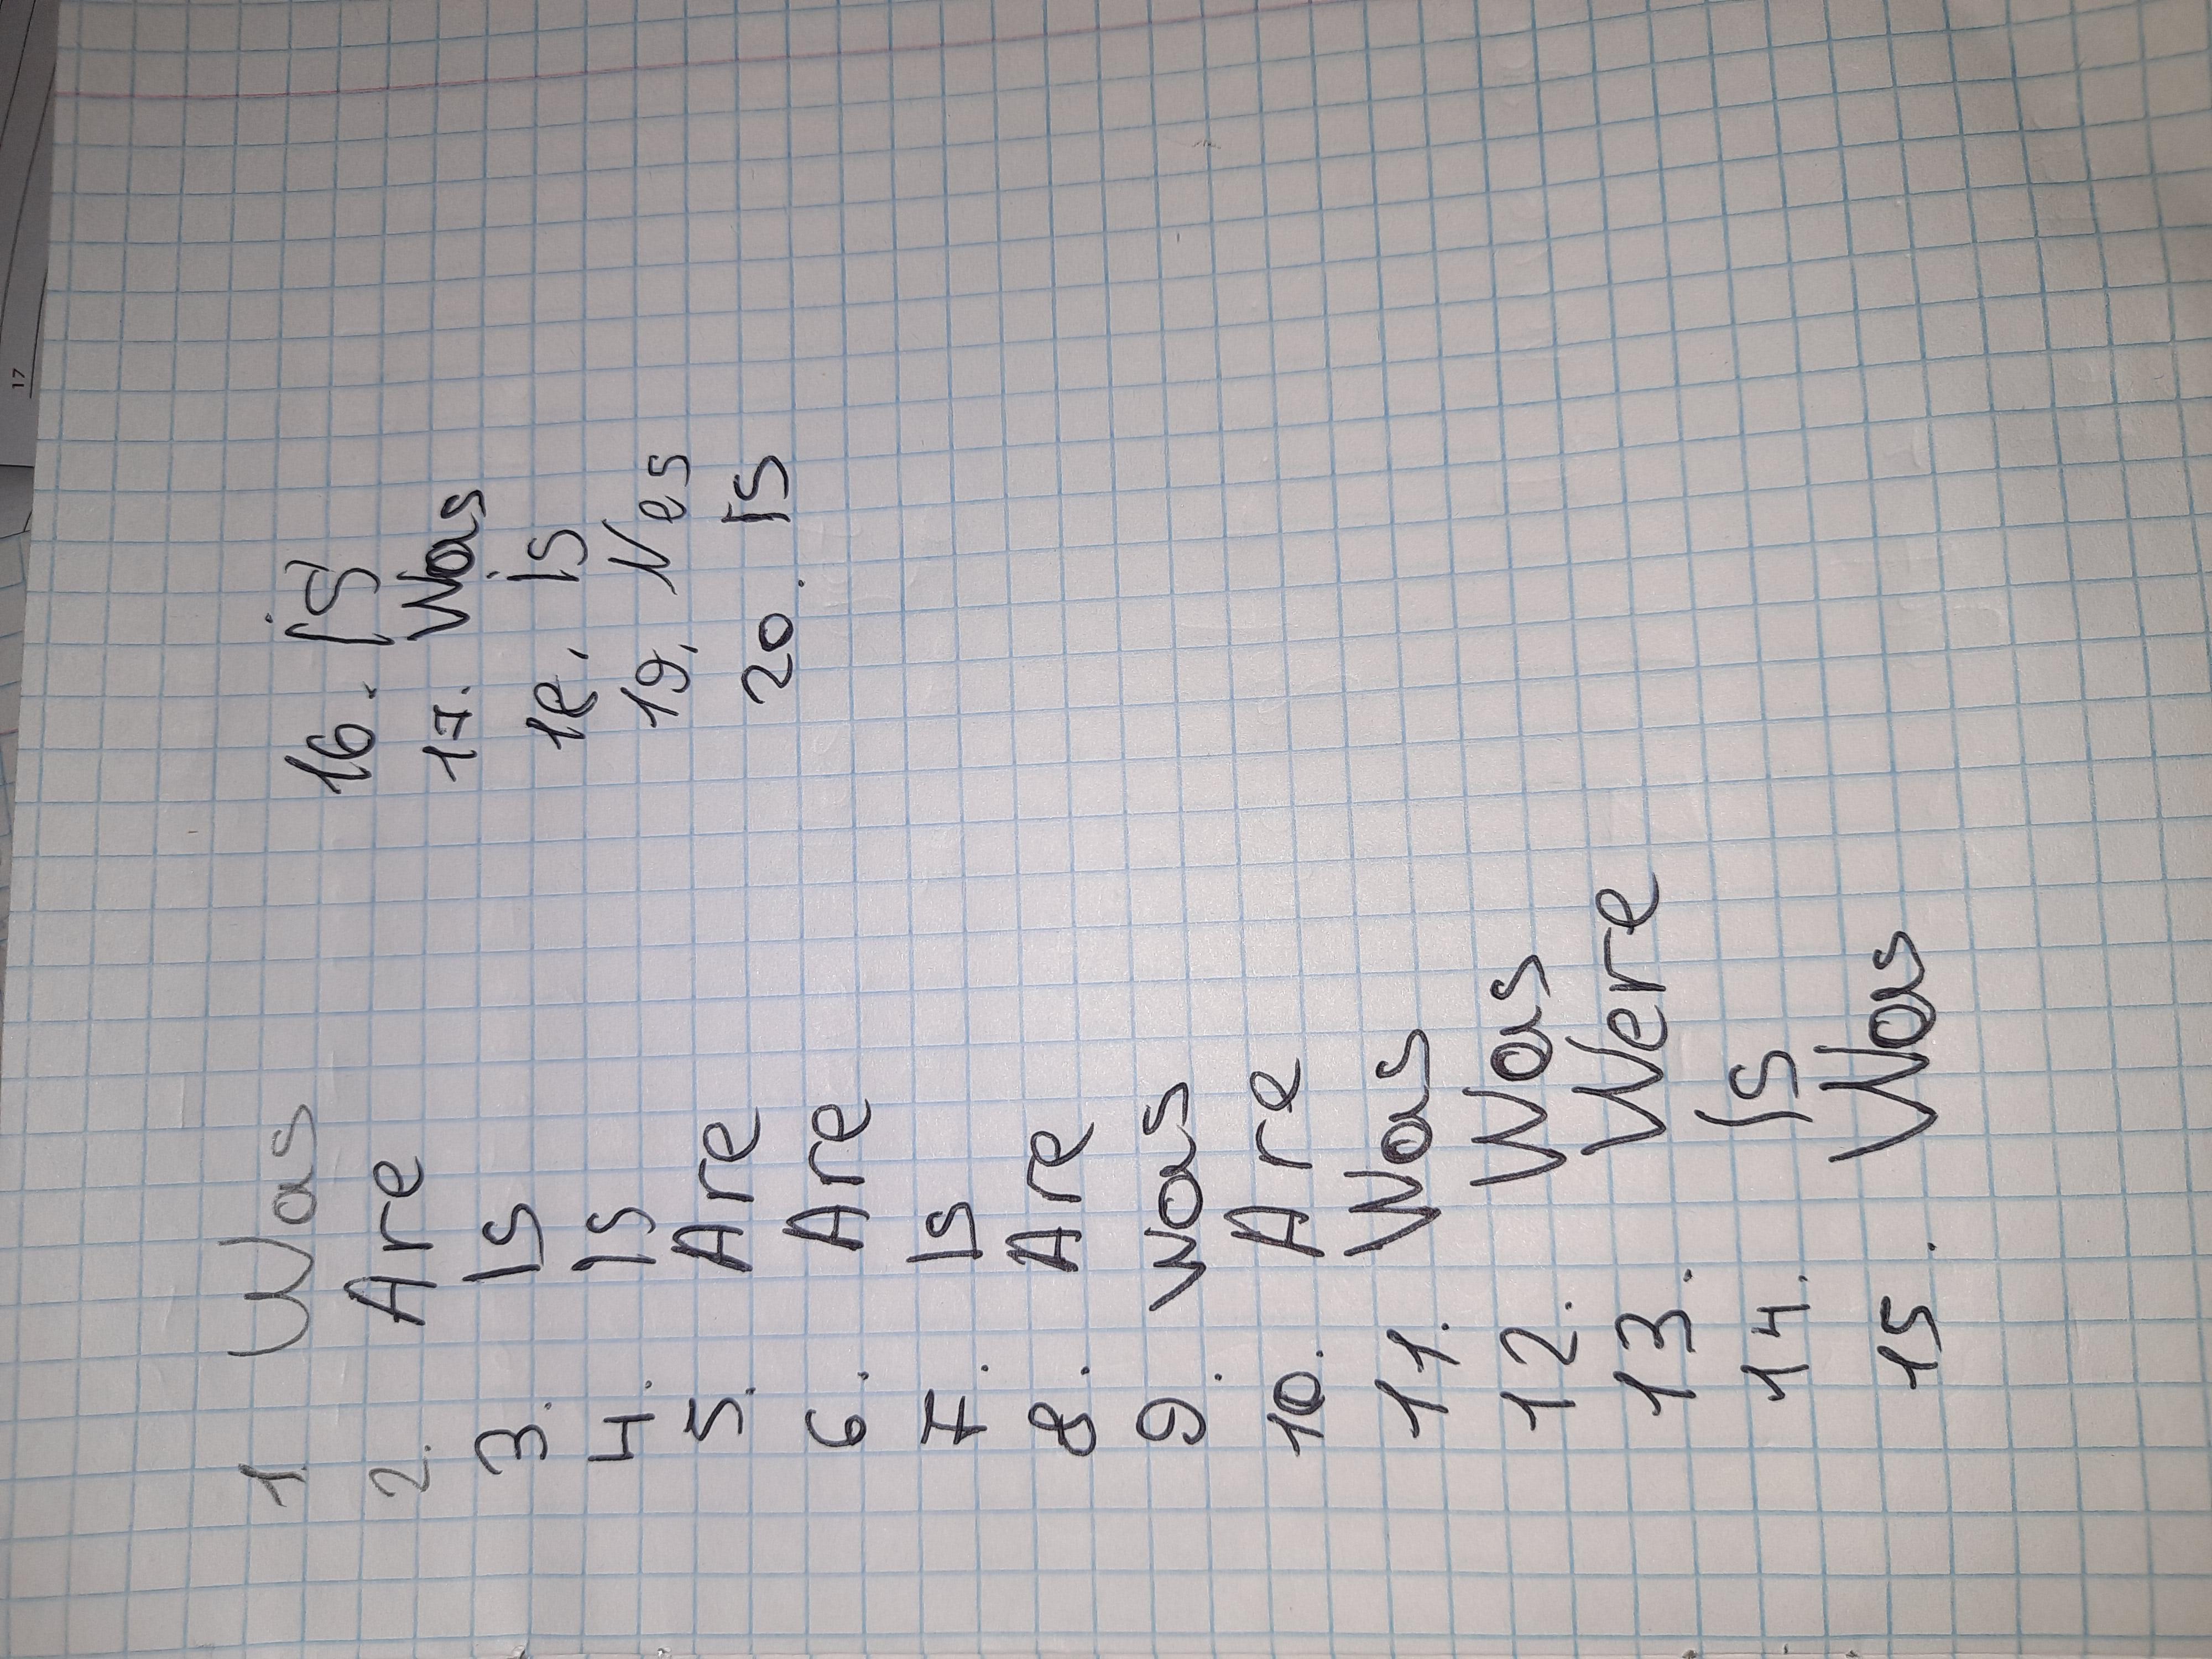 1. Was
2. Are
3. Is
4. Is
5. Are
6. Are
7. Is
8. Are
9. was
10. Are
11. Was
12. Was
13. Were
14. Is
15. Was
16. is
17. Was
18. is
19. Yes
20. Is
17